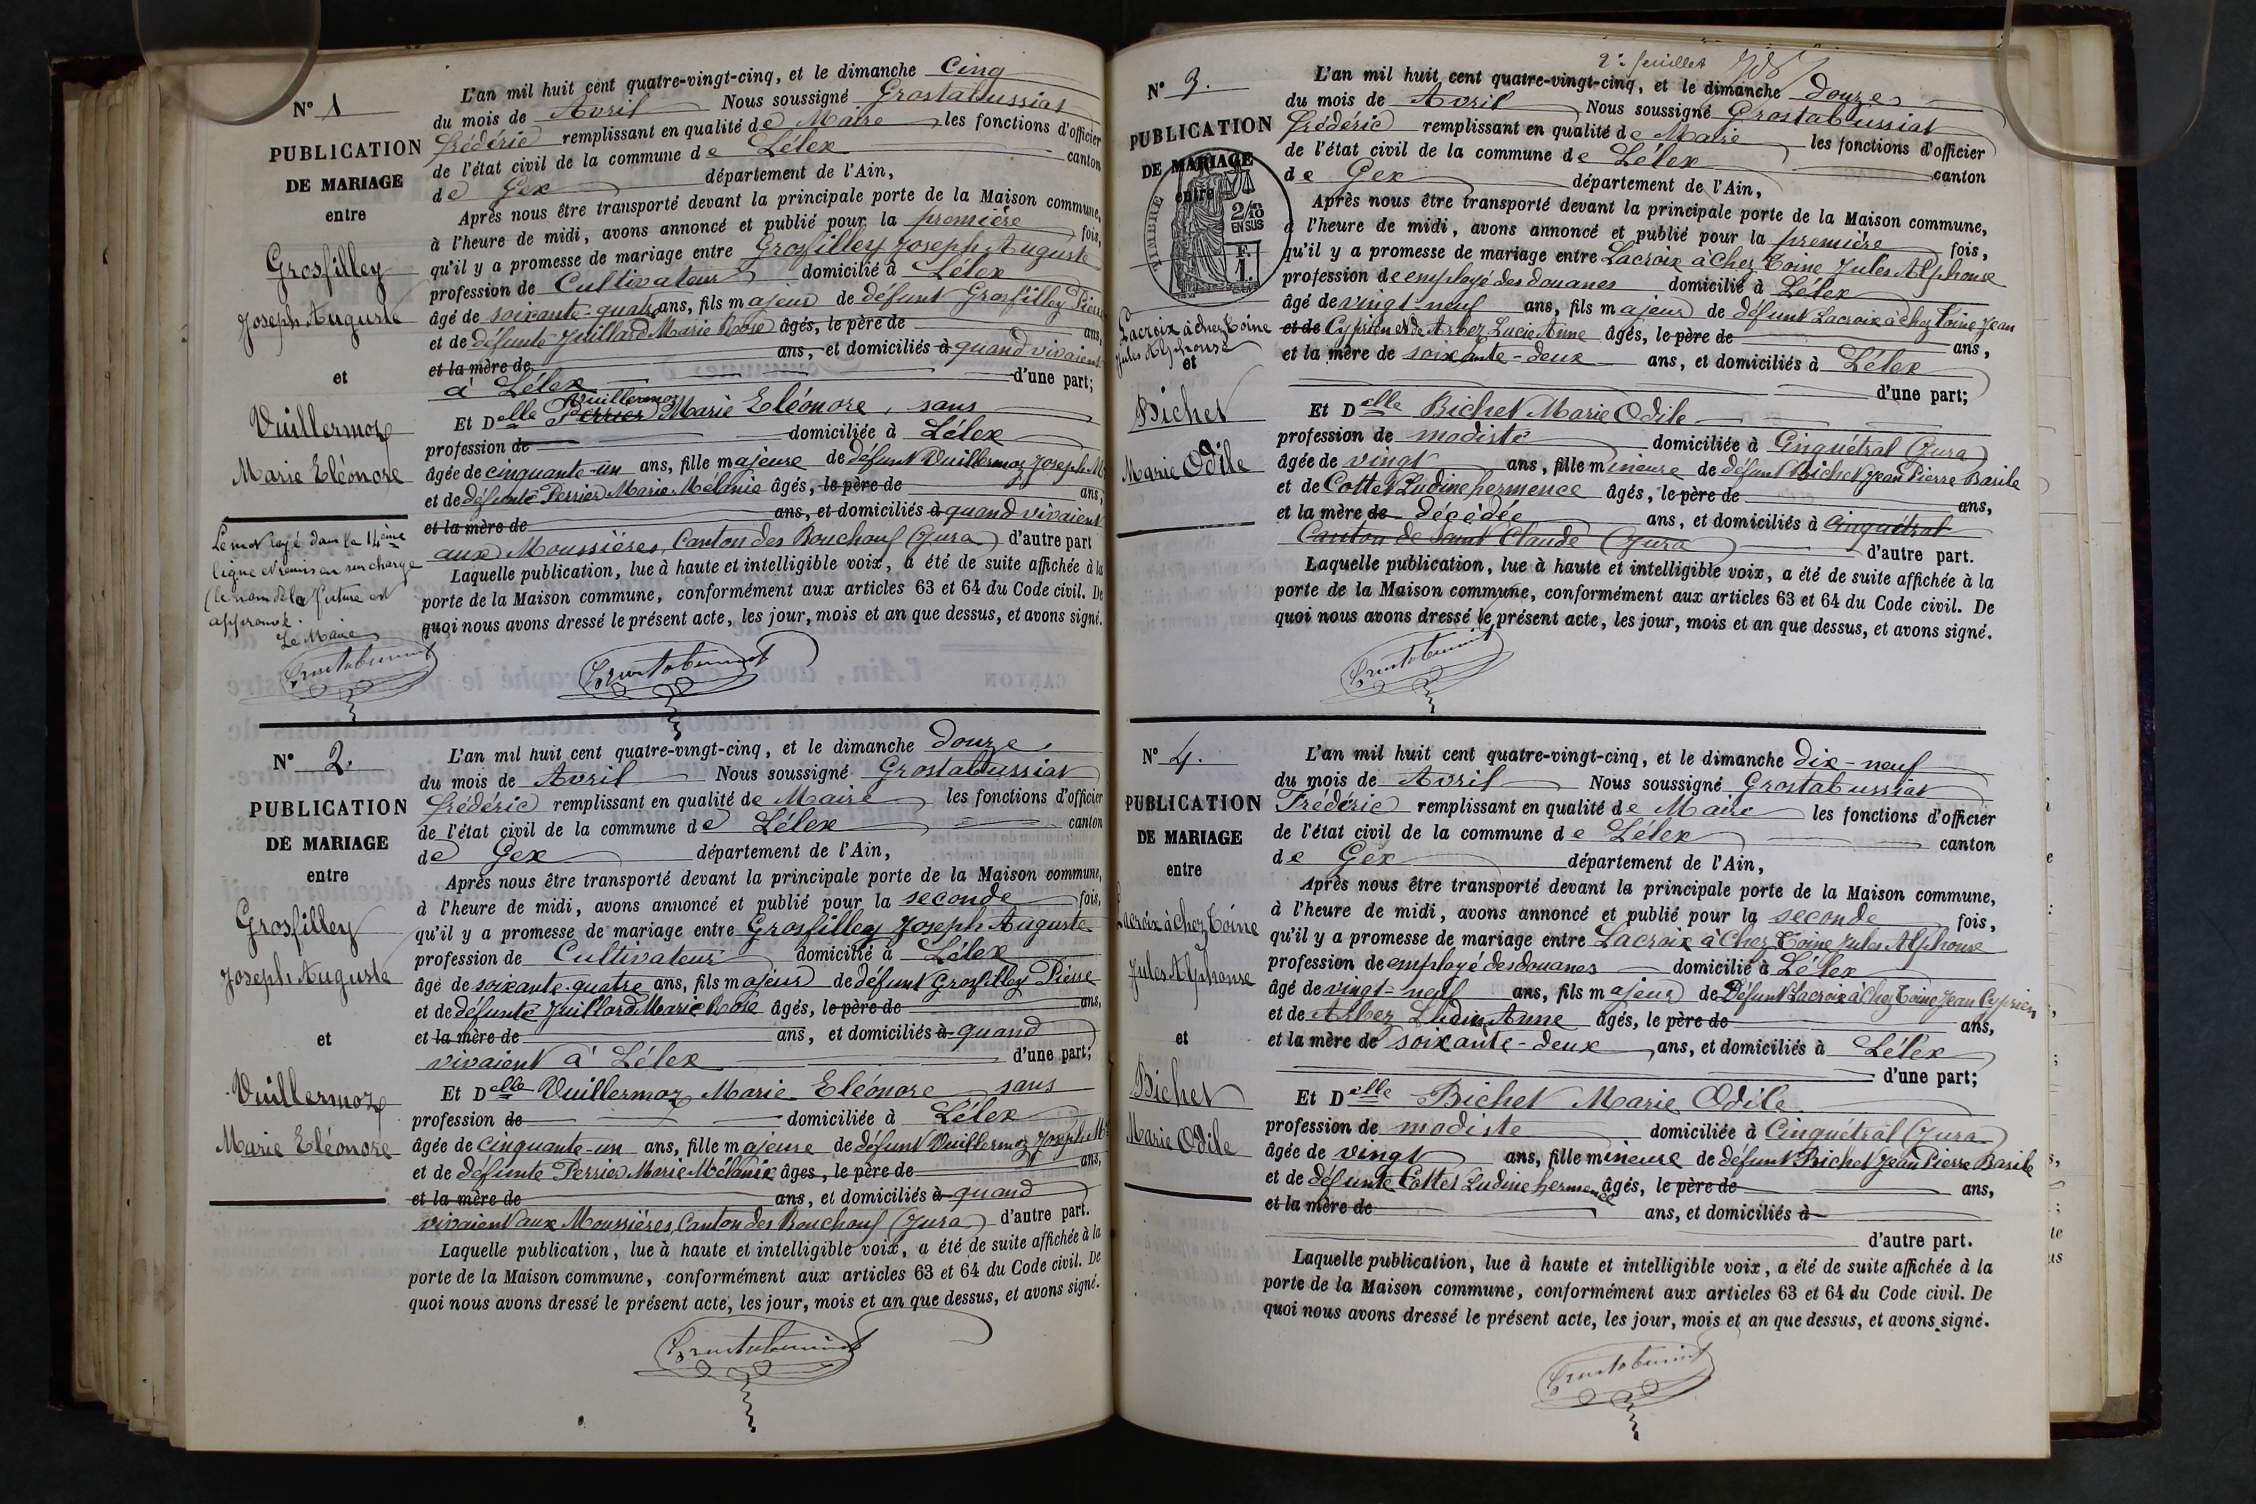 N° 1
PUBLICATION
DE MARIAGE
entre
Grosfilley
Joseph Auguste
et
Vuillermoz
Marie Eléonore
Le mot rayé dans la 14ème
ligne et remis en surcharge
(le nom de la future est
approuvé.
Le Maire
Grostabussiat
L'an mil huit cent quatre-vingt-cinq, et le dimanche Cinq
du mois de Avril Nous soussigné Grostabussiat
frédéric remplissant en qualité de Maire les fonctions d'officier
de l'état civil de la commune de Lélex canton
de Gex département de l'Ain,
Après nous être transporté devant la principale porte de la Maison commune,
à l'heure de midi, avons annoncé et publié pour la première fois,
qu'il y a promesse de mariage entre Grosfilley Joseph Auguste
profession de Cultivateur domicilié à Lélex
âgé de soixante-quatre ans, fils majeur de défunt Grosfilley Pierre
et de défunte Juillard Marie Rose âgés, le père de ans,
et la mère de ans, et domiciliés à quand vivaient
à Lélex d'une part;
Vuillermoz
Et Delle Perrier Marie Eléonore, sans
profession de domiciliée à Lélex
âgée de cinquante-un ans, fille majeure de défunt Vuillermoz Joseph M
et de défunte Perrier Marie Mélanie âgés, le père de ans,
et la mère de ans, et domiciliés à quand vivaient
aux Moussières, Canton des Bouchoux (Jura) d'autre part
Laquelle publication, lue à haute et intelligible voix, a été de suite affichée à la
porte de la Maison commune, conformément aux articles 63 et 64 du Code civil. De
quoi nous avons dressé le présent acte, les jour, mois et an que dessus, et avons signé.
Grostabussiat
N° 2.
PUBLICATION
DE MARIAGE
entre
Grosfilley
Joseph Auguste
et
Vuillermoz
Marie Eléonore
L'an mil huit cent quatre-vingt-cinq, et le dimanche douze
du mois de Avril Nous soussigné Grostabussiat
frédéric remplissant en qualité de Maire les fonctions d'officier
de l'état civil de la commune de Lélex canton
de Gex département de l'Ain,
Après nous être transporté devant la principale porte de la Maison commune,
à l'heure de midi, avons annoncé et publié pour la seconde fois,
qu'il y a promesse de mariage entre Grosfilley Joseph Auguste
profession de Cultivateur domicilié à Lélex
âgé de soixante-quatre ans, fils majeur de défunt Grosfilley Pierre
et de défunte Juillard Marie Rose âgés, le père de ans,
et la mère de ans, et domiciliés à quand
vivaient à Lélex d'une part;
Et Delle Vuillermoz Marie Eléonore sans
profession de domiciliée à Lélex
âgée de cinquante-un ans, fille majeure de défunt Vuillermoz Joseph M
et de défunte Perrier Marie Mélanie âgés, le père de ans,
et la mère de ans, et domiciliés à quand
vivaient aux Moussières, Canton des Bouchoux (Jura) d'autre part.
Laquelle publication, lue à haute et intelligible voix, a été de suite affichée à la
porte de la Maison commune, conformément aux articles 63 et 64 du Code civil. De
quoi nous avons dressé le présent acte, les jour, mois et an que dessus, et avons signé.
Grostabussiat
2e feuillet
N° 3.
PUBLICATION
DE MARIAGE
entre
TIMBRE
2/10
EN SUS
F.
1.
Lacroix à chez Toine
Jules Alphonse
et
Bichet
Marie Odile
L'an mil huit cent quatre-vingt-cinq, et le dimanche douze
du mois de Avril Nous soussigné Grostabussiat
frédéric remplissant en qualité de Maire les fonctions d'officier
de l'état civil de la commune de Lélex canton
de Gex département de l'Ain,
Après nous être transporté devant la principale porte de la Maison commune,
à l'heure de midi, avons annoncé et publié pour la première fois,
qu'il y a promesse de mariage entre Lacroix à chez Toine Jules Alphonse
profession de employé des douanes domicilié à Lélex
âgé de vingt-neuf ans, fils majeur de défunt Lacroix à chez Toine Jean
et de Cyprien et de Arbez Lucie Anne âgés, le père de ans,
et la mère de soixante-deux ans, et domiciliés à Lélex
d'une part;
Et Delle Bichet Marie Odile
profession de modiste domiciliée à Cinquétral (Jura)
âgée de vingt ans, fille mineure de défunt Bichet Jean Pierre Basile
et de Cottet Ludine hermence âgés, le père de ans,
et la mère de décédée ans, et domiciliés à Cinquétral
Canton de Saint Claude (Jura) d'autre part.
Laquelle publication, lue à haute et intelligible voix, a été de suite affichée à la
porte de la Maison commune, conformément aux articles 63 et 64 du Code civil. De
quoi nous avons dressé le présent acte, les jour, mois et an que dessus, et avons signé.
Grostabussiat
N° 4.
PUBLICATION
DE MARIAGE
entre
Lacroix à chez Toine
Jules Alphonse
et
Bichet
Marie Odile
L'an mil huit cent quatre-vingt-cinq, et le dimanche dix-neuf
du mois de Avril Nous soussigné Grostabussiat
Frédéric remplissant en qualité de Maire les fonctions d'officier
de l'état civil de la commune de Lélex canton
de Gex département de l'Ain,
Après nous être transporté devant la principale porte de la Maison commune,
à l'heure de midi, avons annoncé et publié pour la seconde fois,
qu'il y a promesse de mariage entre Lacroix à Chez Toine Jules Alphonse
profession de employé des douanes domicilié à Lélex
âgé de vingt-neuf ans, fils majeur de Défunt Lacroix à chez Toine Jean Cyprien
et de Arbez Anne âgés, le père de ans,
et la mère de soixante-deux ans, et domiciliés à Lélex
d'une part;
Et Delle Bichet Marie Odile
profession de modiste domiciliée à Cinquétral (Jura)
âgée de vingt ans, fille mineure de défunt Bichet Jean Pierre Basile
et de défunte Cottet Ludine hermence âgés, le père de ans,
et la mère de ans, et domiciliés à
d'autre part.
Laquelle publication, lue à haute et intelligible voix, a été de suite affichée à la
porte de la Maison commune, conformément aux articles 63 et 64 du Code civil. De
quoi nous avons dressé le présent acte, les jour, mois et an que dessus, et avons signé.
Grostabussiat